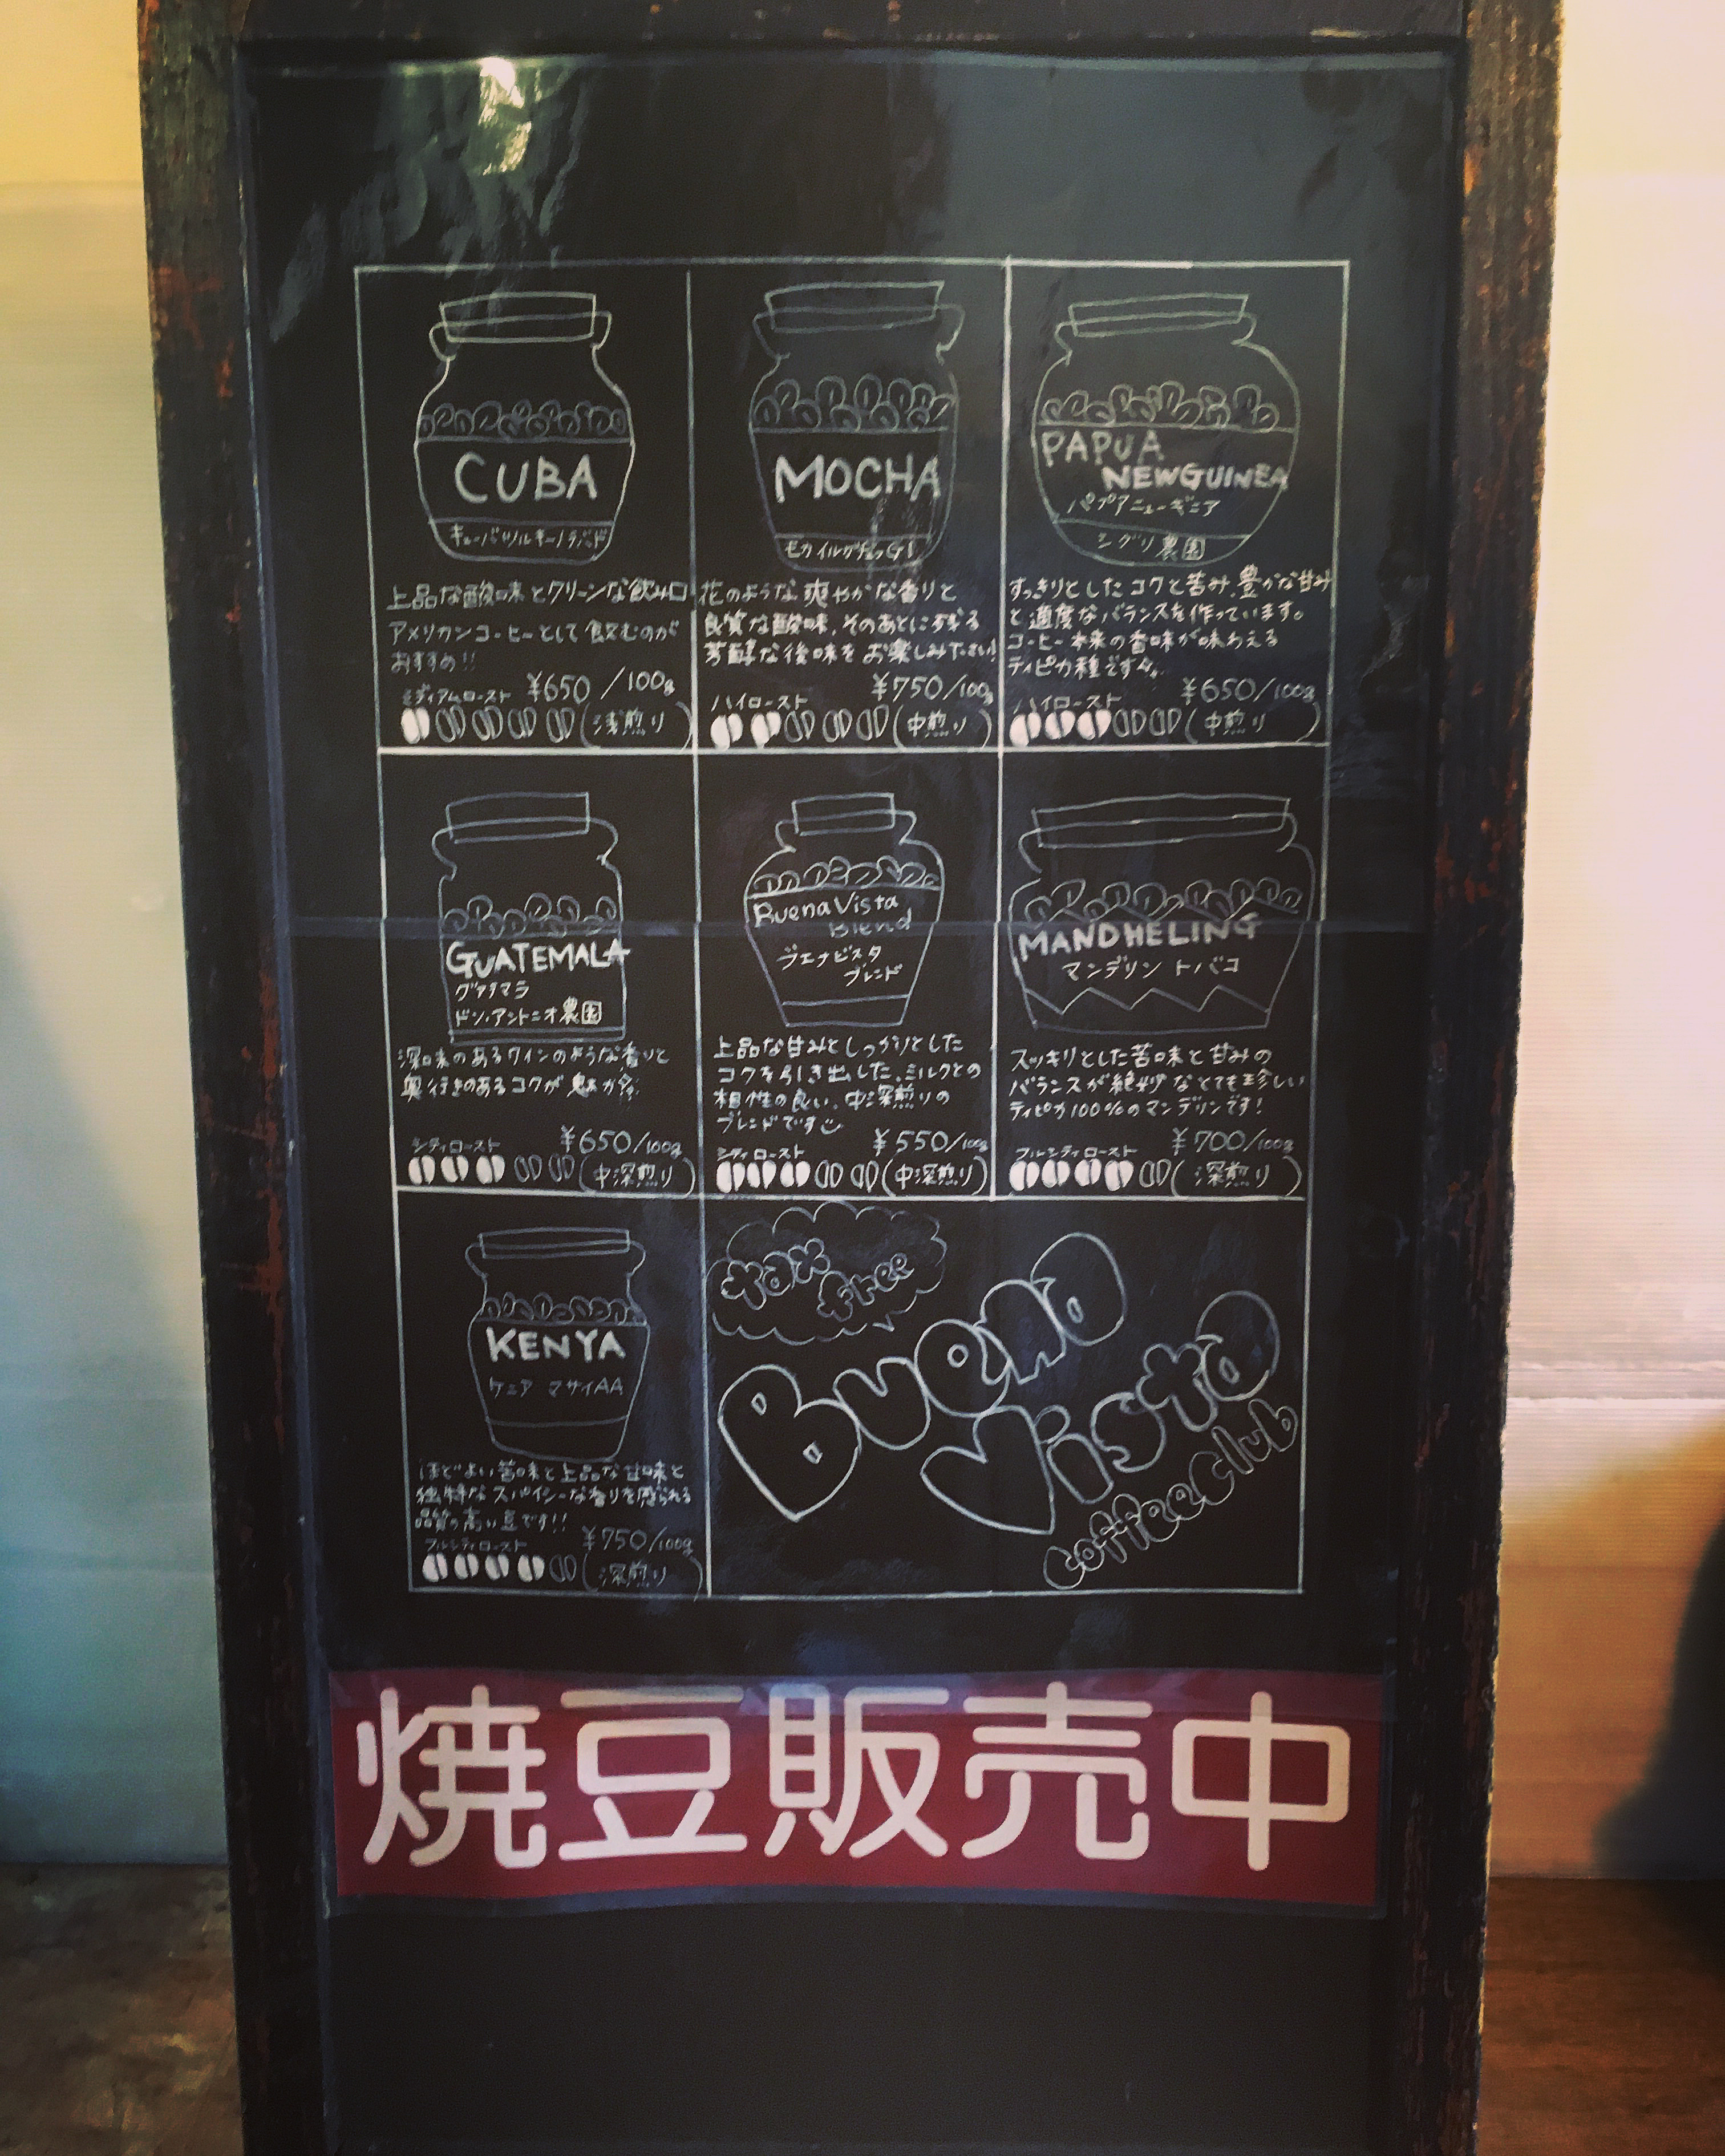 CUBA
上品な酸味とクリーンな飲み口
アメリカンコーヒーとして飲むのが
おすすめ!!
ミディアムロースト ¥650/100g
(浅煎り)
MOCHA
モカイルガチェフG1
花のような爽やかな香りと
良質な酸味、そのあとに残る
芳醇な後味をお楽しみ下さい!
ハイロースト ¥750/100g
(中煎り)
PAPUA
NEWGUINEA
パプアニューギニア
シグリ農園
すっきりとしたコクと苦み、豊かな甘み
と適度なバランスを作っています。
コーヒー本来の香味が味わえる
ティピカ種です
ハイロースト ¥650/100g
(中煎り)
GUATEMALA
グアテマラ
ドン・アントニオ農園
深味のあるワインのような香りと
奥行きのあるコクが魅力
シティロースト ¥650/100g
(中深煎り)
Buena Vista
Blend
ブエナビスタ
ブレンド
上品な甘みとしっかりとした
コクを引き出した、ミルクとの
相性の良い、中深煎りの
ブレンドです
シティロースト ¥550/100g
(中深煎り)
MANDHELING
マンデリン トバコ
スッキリとした苦味と甘みの
バランスが絶妙なとても珍しい
ティピカ100%のマンデリンです!
フルシティロースト ¥700/100g
(深煎り)
KENYA
ケニア マサイAA
ほどよい苦味と上品な甘味と
独特なスパイシーな香りを感じられる
品質の高い豆です!!
フルシティロースト ¥750/100g
(深煎り)
tax
free
Buena
Vista
coffee club
焼豆販売中